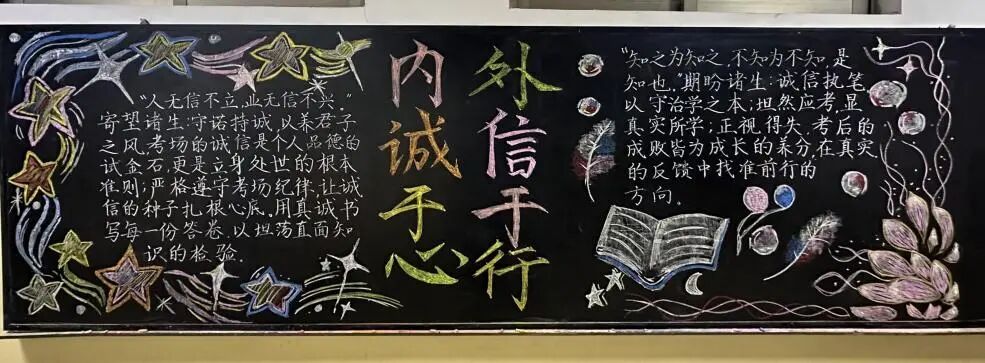 “人无信不立,业无信不兴。”
寄望诸生:守诺持诚,以养君子
之风,考场的诚信是个人品德的
试金石,更是立身处世的根本
准则;严格遵守考场纪律,让诚
信的种子扎根心底,用真诚书
写每一份答卷,以坦荡直面知
识的检验。
内诚于心
外信于行
“知之为知之,不知为不知,是
知也。”期盼诸生:诚信执笔,
以守治学之本;坦然应考,显
真实所学;正视得失,考后的
成败皆为成长的养分,在真实
的反馈中找准前行的
方向。